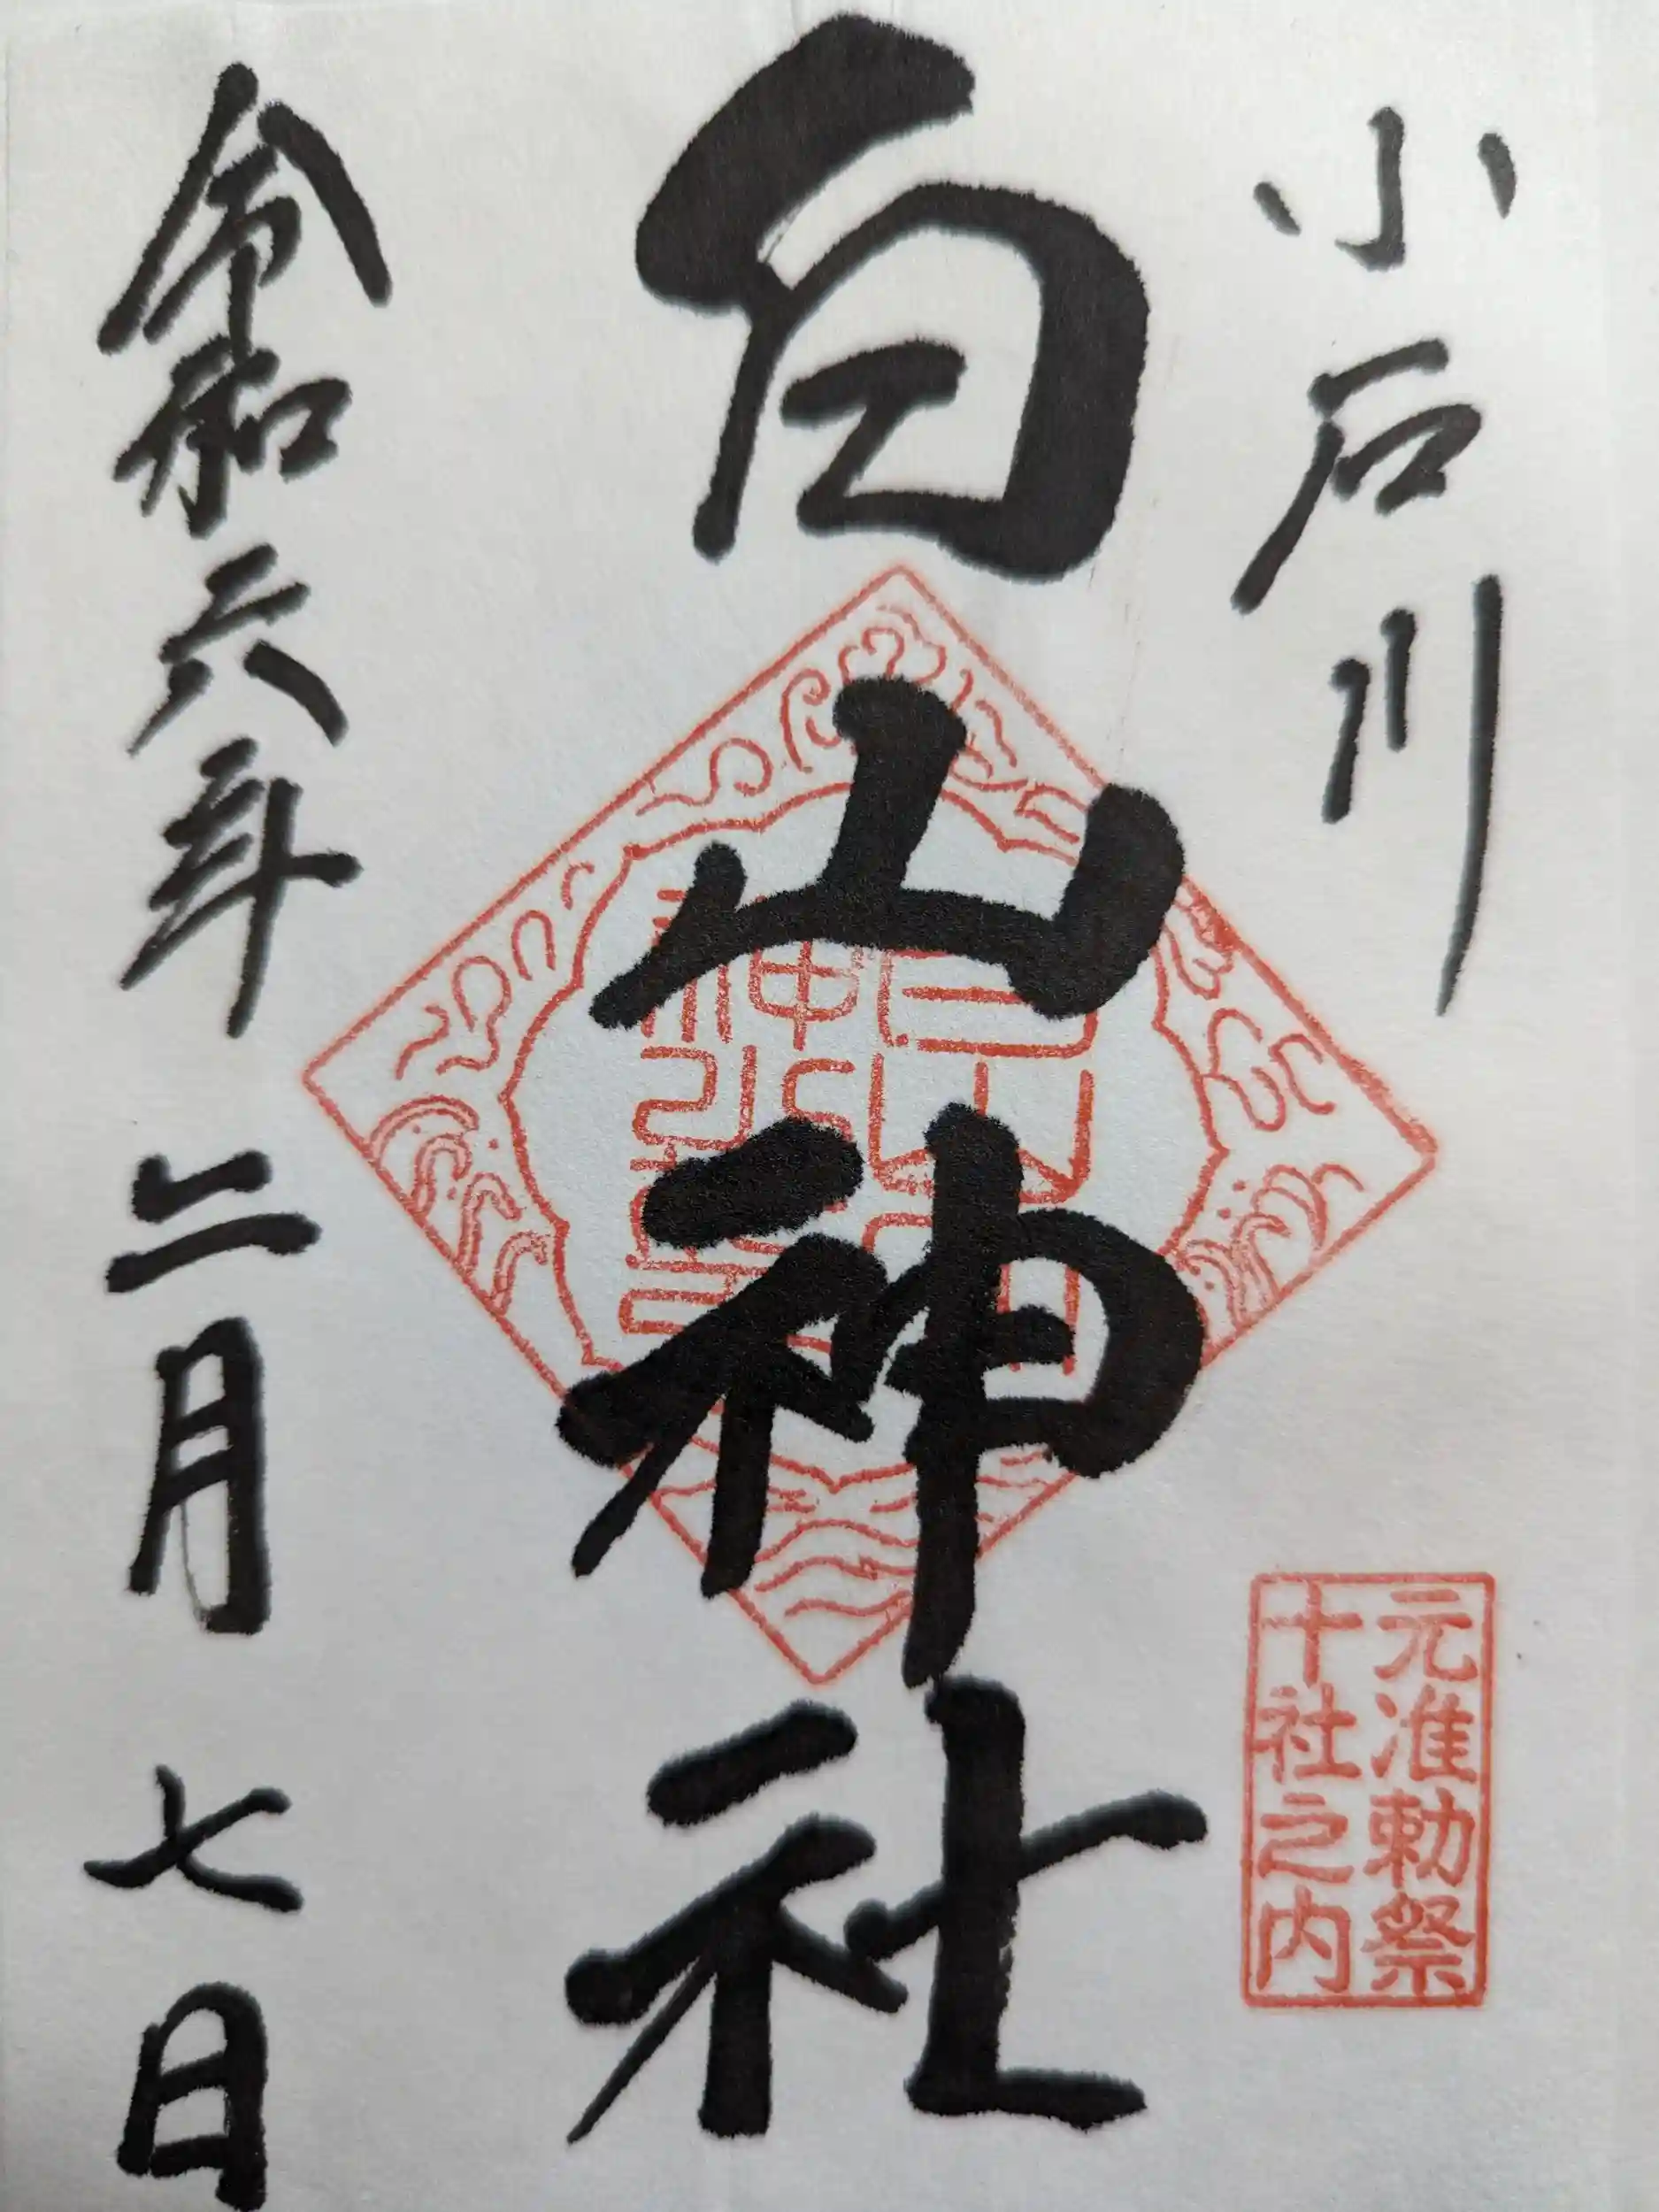 小石川
元准勅祭
十社之内
白山神社
令和六年 二月 七日